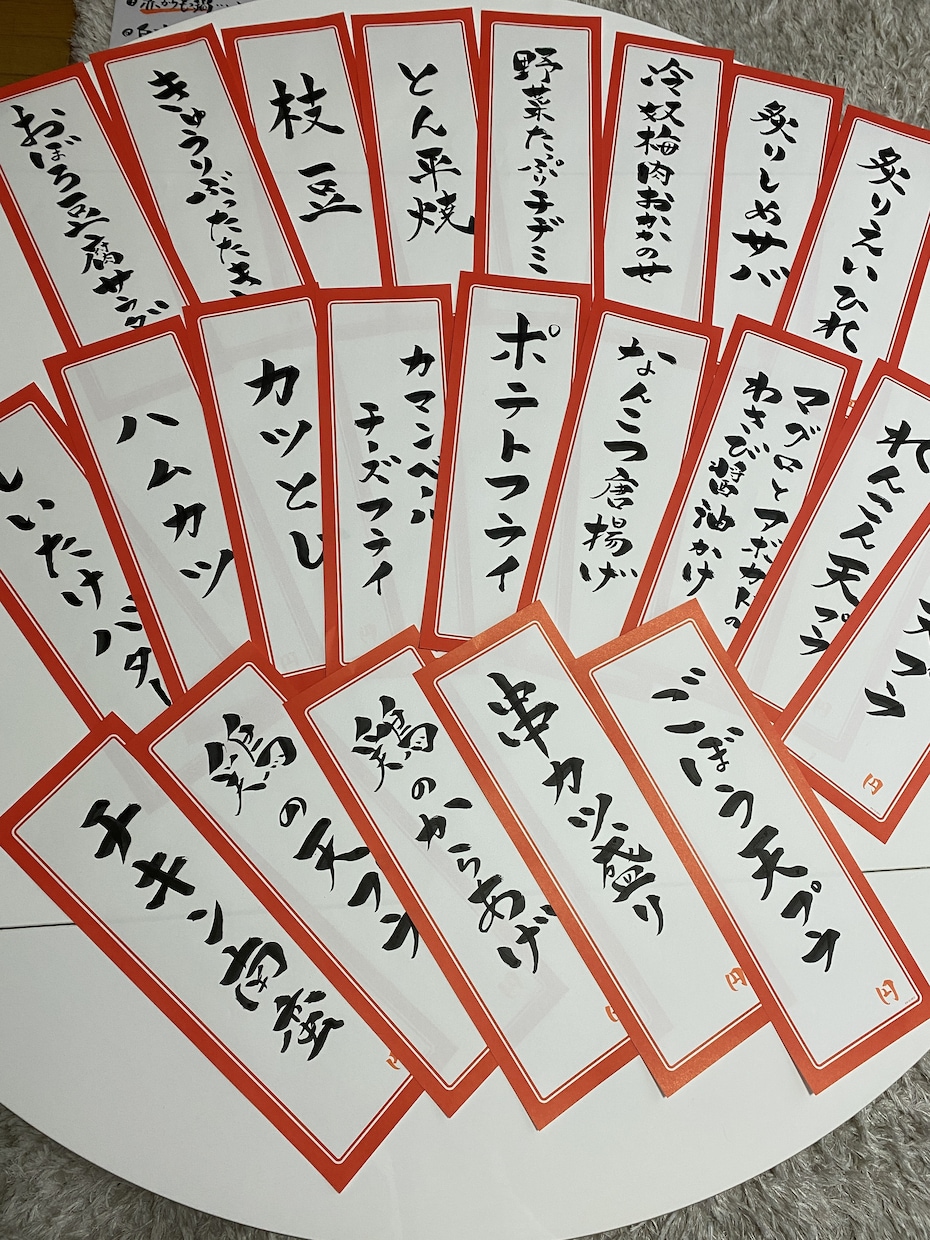 おぼろ豆腐サラダ
きゅうりぶったたき
枝豆
とん平焼
野菜たぷりチヂミ
冷奴梅肉おかのせ
炙りしめサバ
炙りえいひれ
しいたけバター
ハムカツ
カツとじ
カマンベール
チーズフライ
ポテトフライ
なんこつ唐揚げ
マグロとアボカドの
わさび醤油かけ
れんこん天プラ
天プラ
円
チキン南蛮
鶏の天プラ
鶏のからあげ
串カツ盛り
円
ごぼう天プラ
円